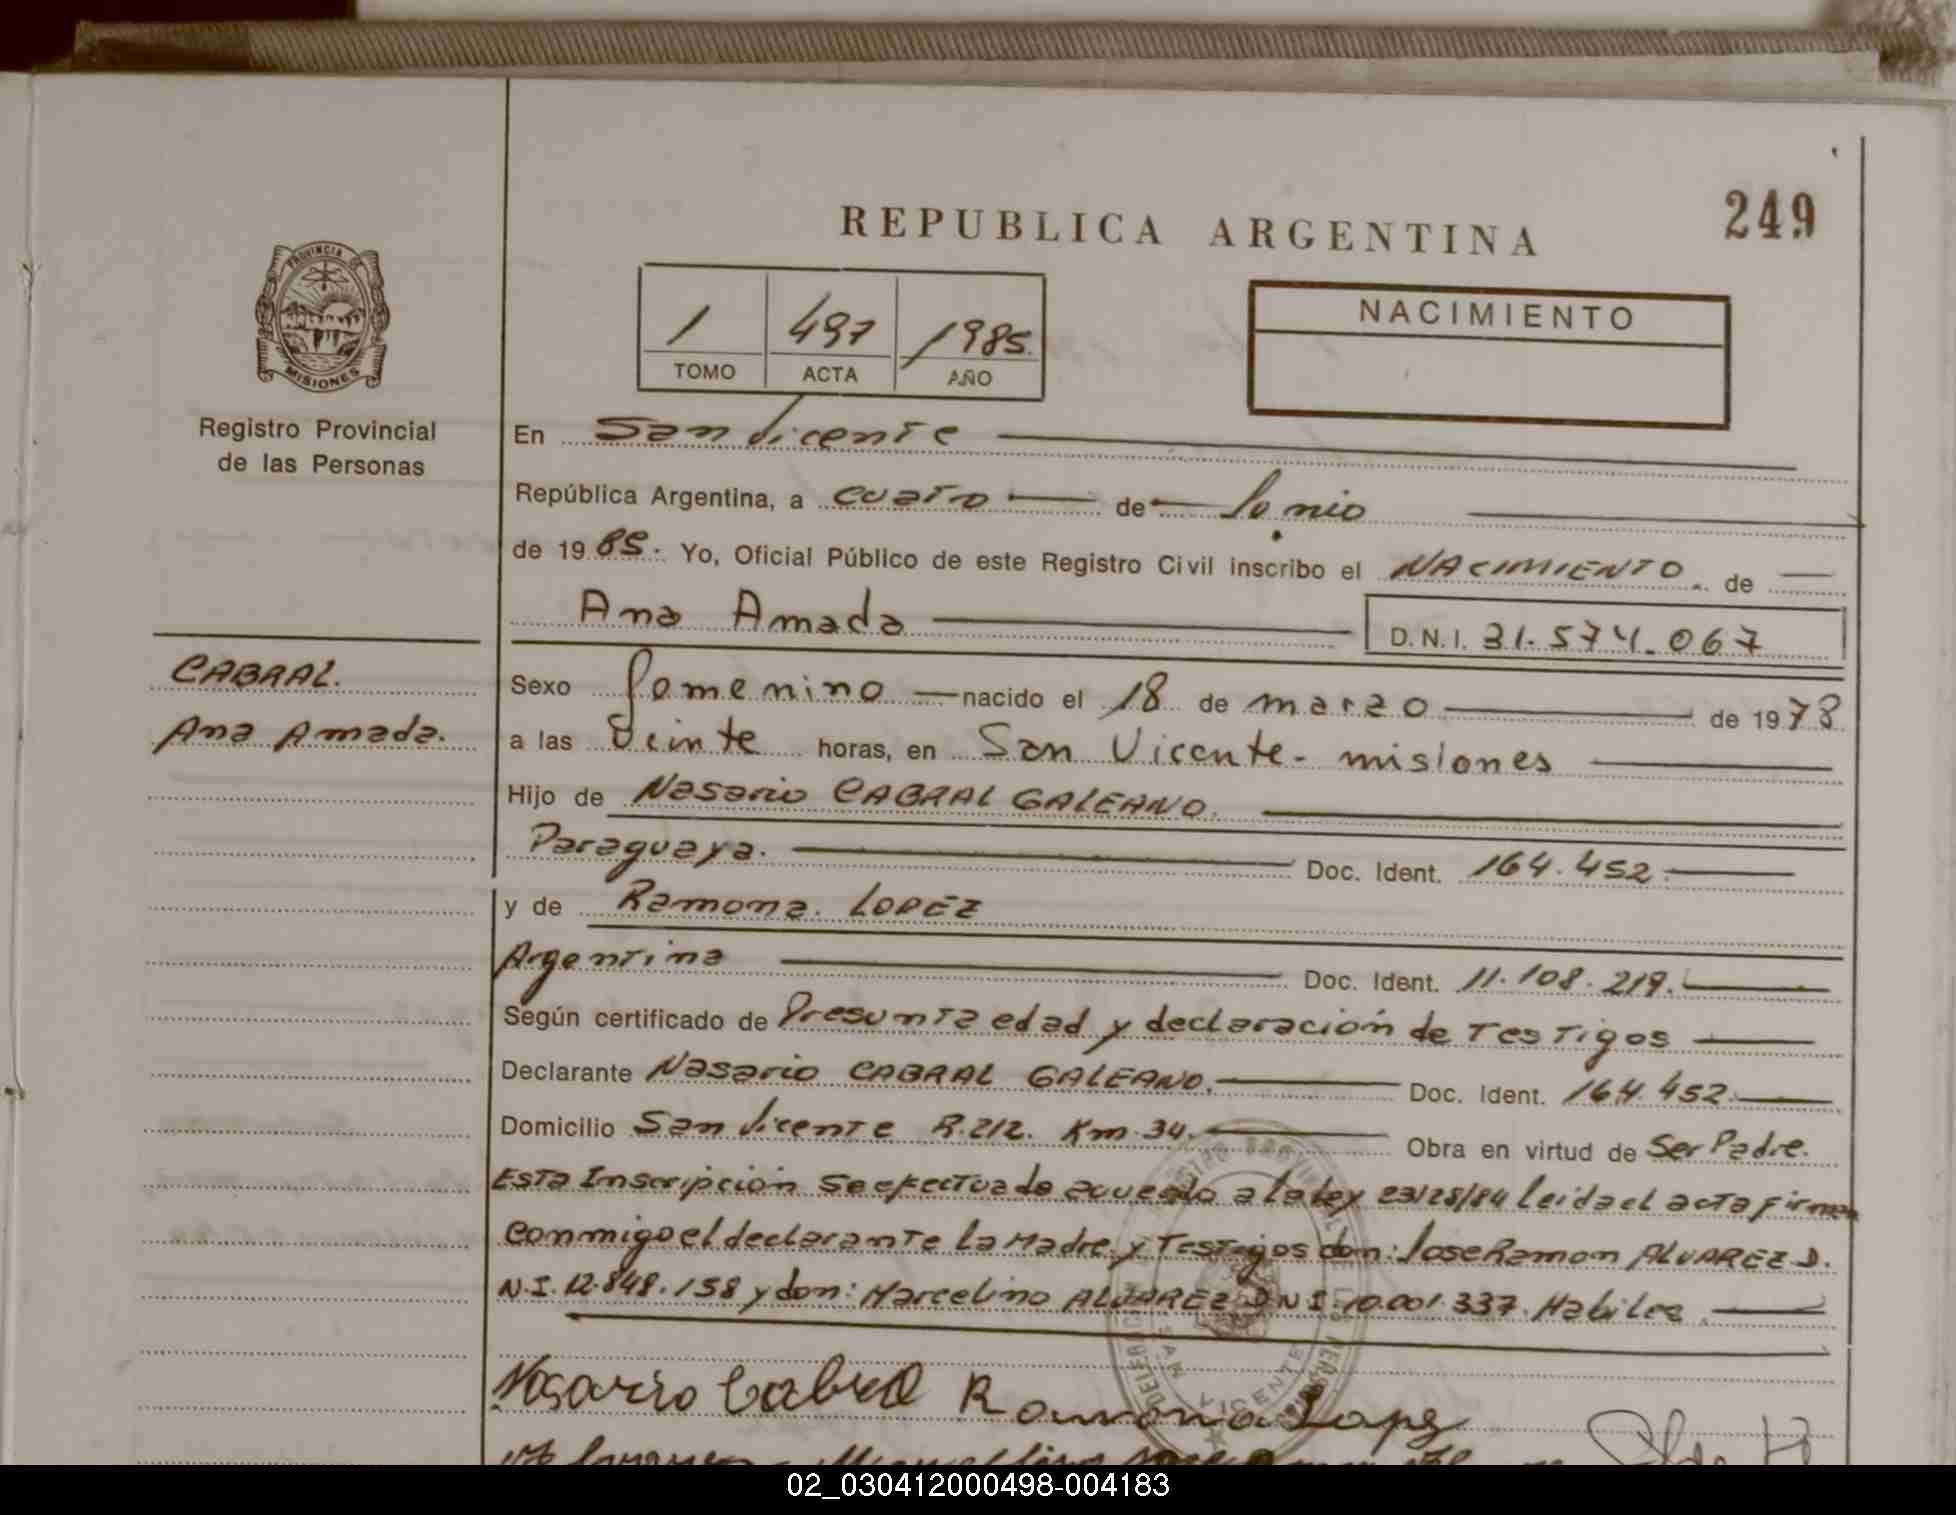 249
REPUBLICA ARGENTINA
PROVINCIA DE
MISIONES
Registro Provincial
de las Personas
1 497 1985
TOMO ACTA AÑO
NACIMIENTO
En San Vicente
República Argentina, a cuatro de Junio
de 19 85. Yo, Oficial Público de este Registro Civil inscribo el NACIMIENTO de
Ana Amada D.N.I. 31.574.067
CABRAL.
Ana Amada.
Sexo femenino nacido el 18 de marzo de 19 78
a las Veinte horas, en San Vicente - misiones
Hijo de Nasario CABRAL GALEANO.
Paraguaya. Doc. Ident. 164.452
y de Ramona. LOPEZ
Argentina Doc. Ident. 11.108.219.
Según certificado de Presunta edad y declaración de Testigos
Declarante Nasario CABRAL GALEANO. Doc. Ident. 164.452.
Domicilio San Vicente R.212. Km.34. Obra en virtud de Ser Padre.
Esta Inscripción se efectua de acuerdo a la ley 23128/84 leida el acta firman
conmigo el declarante la Madre y Testigos don: Jose Ramon ALVAREZ D.
N.I. 12.848.158 y don: Marcelino ALVAREZ D N I. 10.001.337. Habiles
Nosario Cabral Ramona Lopez
VICENTE
02_030412000498-004183